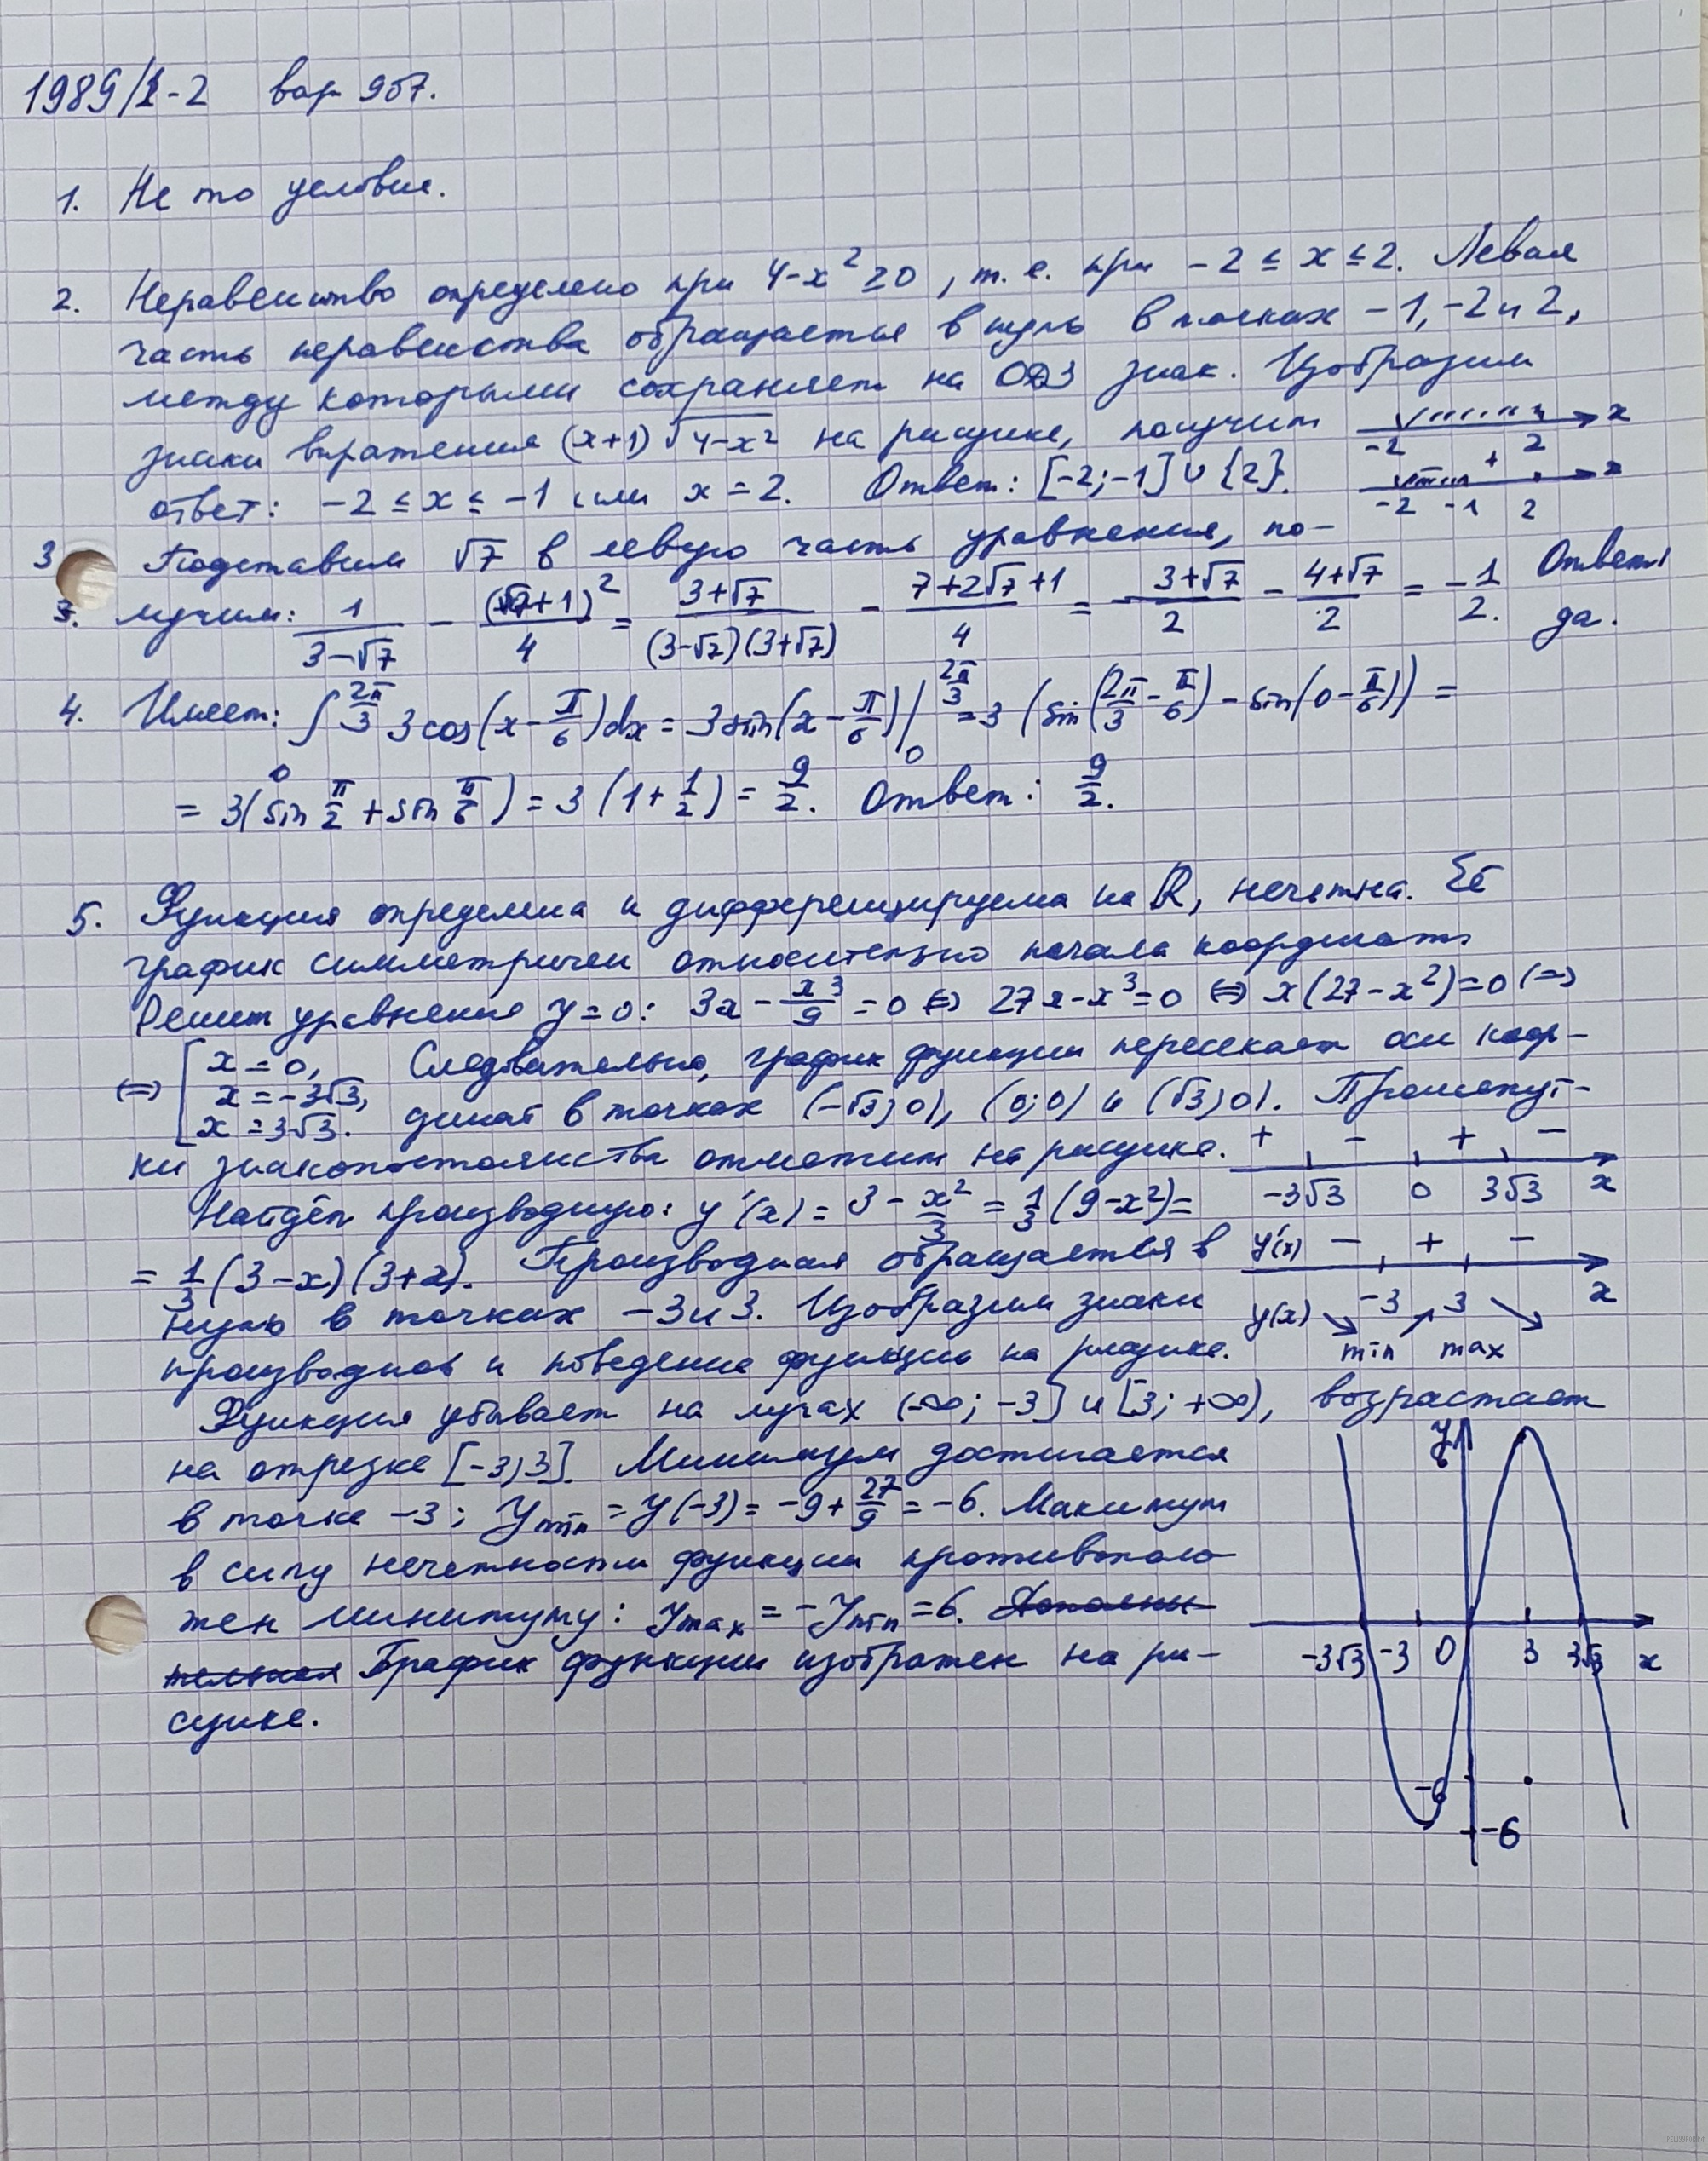 1989/1-2 вар 957.
1. Не то условие.
2. Неравенство определено при 4-x² ≥ 0, т. е. при -2 ≤ x ≤ 2. Левая
часть неравенства обращается в нуль в точках -1, -2 и 2,
между которыми сохраняет на ОДЗ знак. Изобразим
знаки выражения (x+1)√(4-x²) на рисунке, получим
-2 2 x
ответ: -2 ≤ x ≤ -1 или x = 2. Ответ: [-2; -1] ∪ {2}.
+ -2 -1 2 x
3. Подставим √7 в левую часть уравнения, по-
лучим: 1/(3-√7) - (√7+1)²/4 = (3+√7)/((3-√7)(3+√7)) - (7+2√7+1)/4 = (3+√7)/2 - (4+√7)/2 = -1/2. Ответ: да.
4. Имеем: ∫₀^(2π/3) 3cos(x-π/6)dx = 3sin(x-π/6)|₀^(2π/3) = 3(sin(2π/3-π/6) - sin(0-π/6)) =
= 3(sin π/2 + sin π/6) = 3(1+1/2) = 9/2. Ответ: 9/2.
5. Функция определена и дифференцируема на ℝ, нечетна. Её
график симметричен относительно начала координат.
Решим уравнение y=0: 3x - x³/9 = 0 ⇔ 27x-x³=0 ⇔ x(27-x²)=0 ⇔
⇔ [x=0, x=-3√3, x=3√3. Следовательно, график функции пересекает оси коор-
динат в точках (-√3; 0), (0; 0) и (√3; 0). Промежут-
ки знакопостоянства отметим на рисунке.
+ - + -
-3√3 0 3√3 x
Найдём производную: y'(x) = 3 - x²/3 = 1/3(9-x²) =
= 1/3(3-x)(3+x). Производная обращается в
y'(x) - + -
-3 3 x
нуль в точках -3 и 3. Изобразим знаки
y(x) ↘ ↗ ↘
min max
производной и поведение функции на рисунке.
Функция убывает на лучах (-∞; -3] и [3; +∞), возрастает
на отрезке [-3; 3]. Минимум достигается
в точке -3; y min = y(-3) = -9 + 27/9 = -6. Максимум
в силу нечетности функции противополо-
жен минимуму: y max = -y min = 6. Дополни-
тельная График функции изображен на ри-
сунке.
y
-3√3 -3 0 3 3√3 x
-6
-6